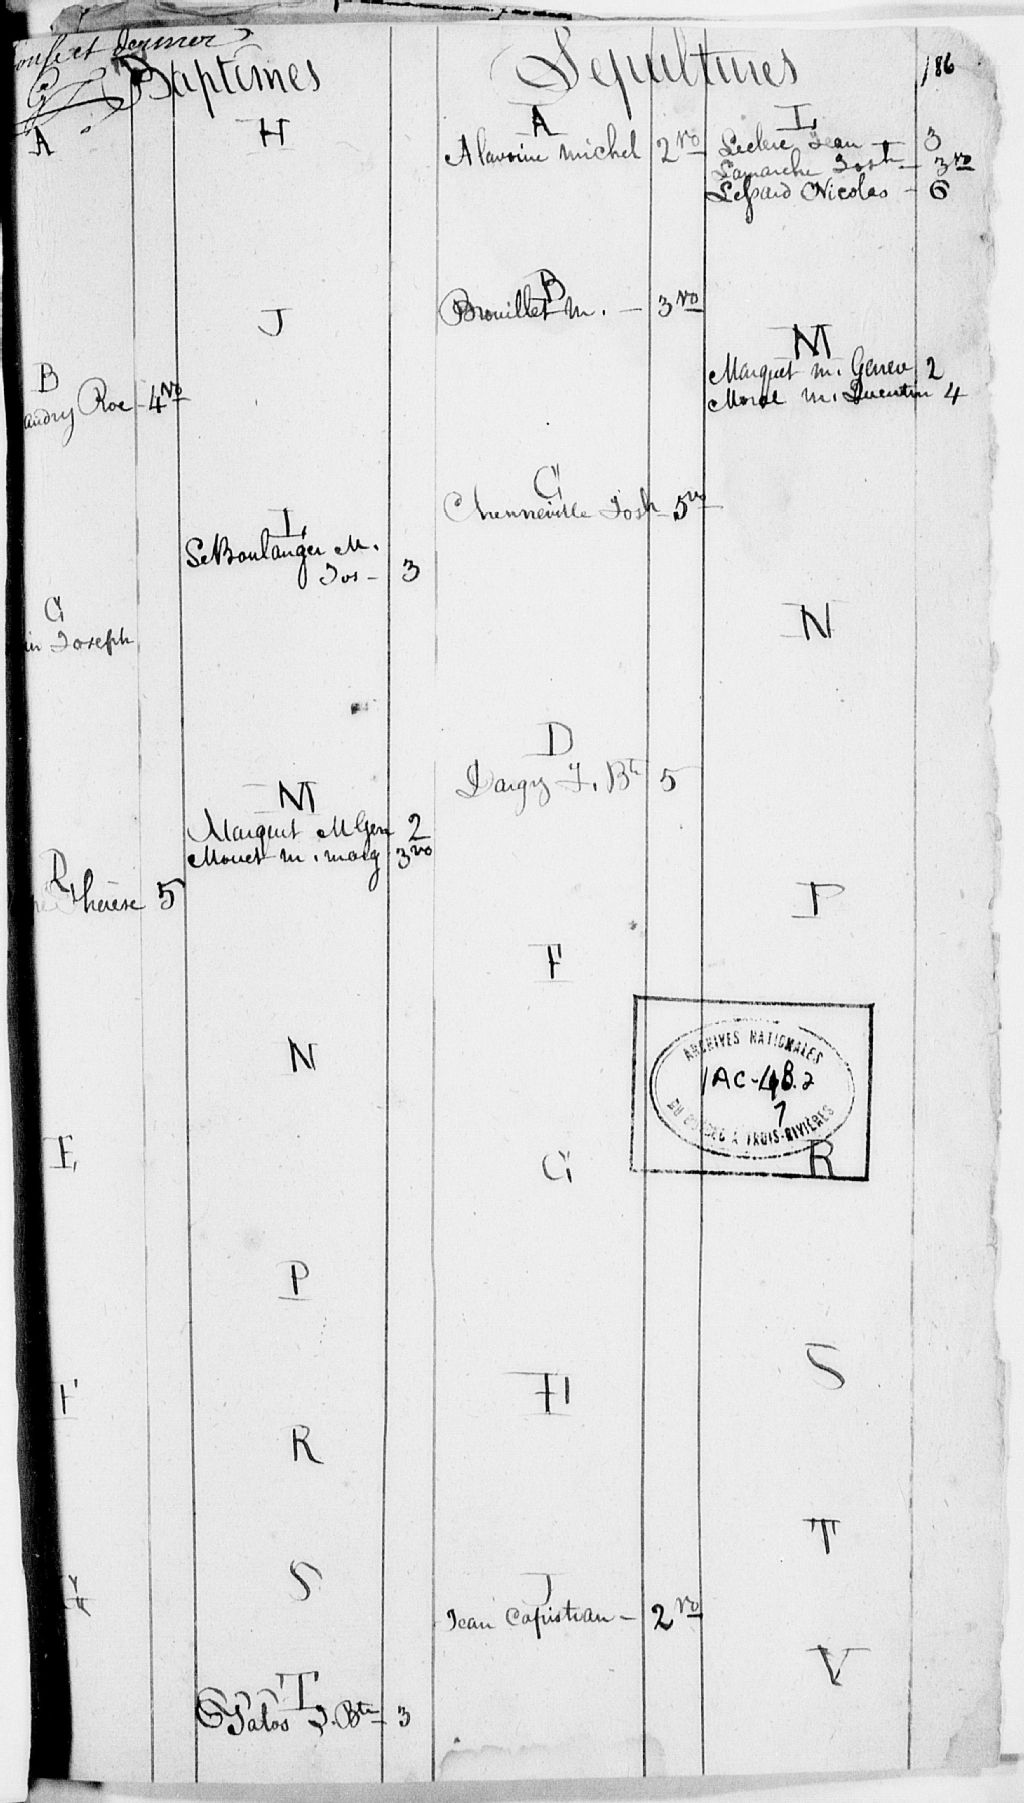 et dernier
Baptêmes
A
B
audry Roe - 4 vo
C
in Joseph
D
Thérèse 5
E
F
G
H
J
L
LeBoulanger M.
Jos - 3
M
Marquet M Gen 2
Mouet m. marg 3 vo
N
P
R
S
T
Tatos J. Bte - 3
Sepultures
A
Alavoine michel 2 vo
B
Brouillet m. - 3 vo
C
Chenneville Josh - 5 vo
D
Dargy J. Bte 5
F
G
H
J
Jean Capistran - 2 vo
186
L
Leclerc Jean - 3
Lamarche Josh - 3 vo
Nicolas - 6
M
Marquet m. Genev 2
m. Quentin 4
N
P
ARCHIVES NATIONALES
1AC-4B.2
7
DU QUÉBEC À TROIS-RIVIÈRES
R
S
T
V